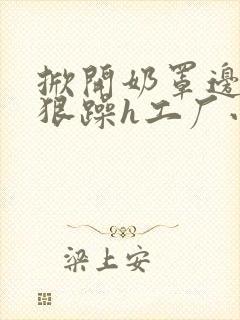 掀開奶罩邊
狠躁h工厂
梁上安